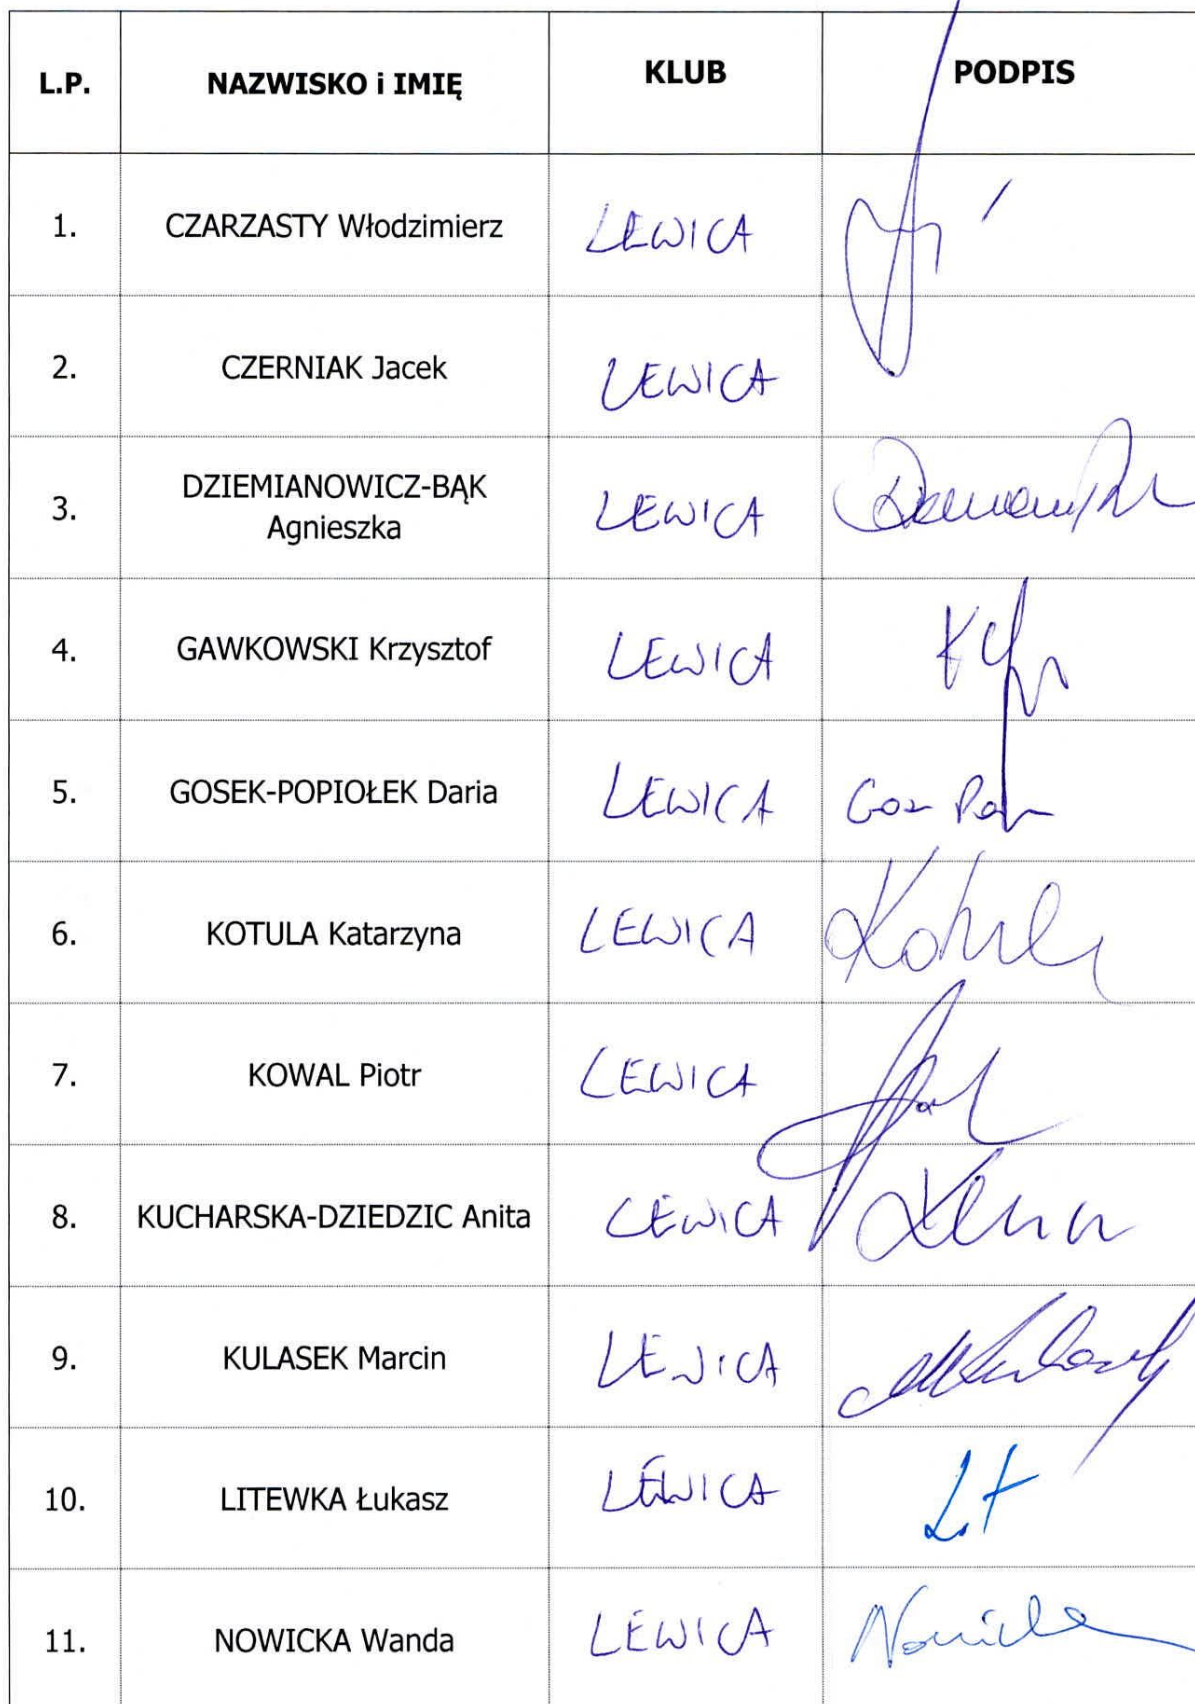 L.P. NAZWISKO i IMIĘ KLUB PODPIS
1. CZARZASTY Włodzimierz LEWICA
2. CZERNIAK Jacek LEWICA
3. DZIEMIANOWICZ-BĄK
Agnieszka LEWICA
4. GAWKOWSKI Krzysztof LEWICA
5. GOSEK-POPIOŁEK Daria LEWICA
6. KOTULA Katarzyna LEWICA
7. KOWAL Piotr LEWICA
8. KUCHARSKA-DZIEDZIC Anita LEWICA
9. KULASEK Marcin LEWICA
10. LITEWKA Łukasz LEWICA
11. NOWICKA Wanda LEWICA